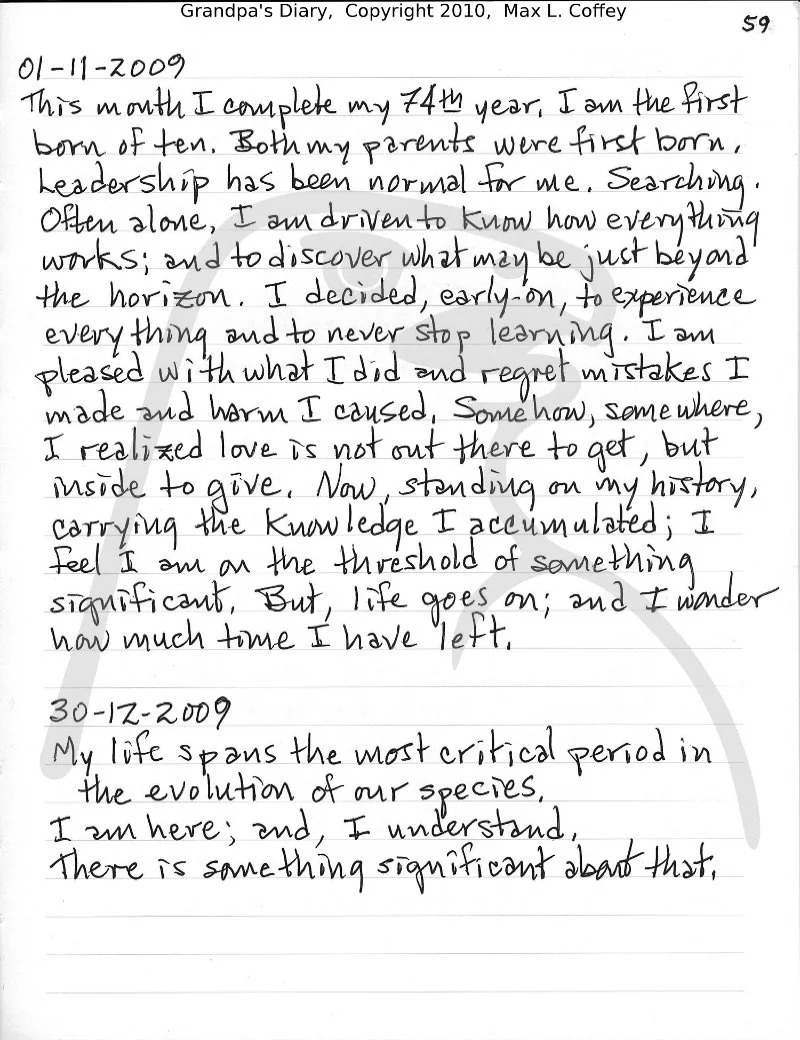 Grandpa's Diary, Copyright 2010, Max L. Coffey
59
01-11-2009
This month I complete my 74th year. I am the first
born of ten. Both my parents were first born.
Leadership has been normal for me. Searching.
Often alone, I am driven to know how everything
works; and to discover what may be just beyond
the horizon. I decided, early-on, to experience
everything and to never stop learning. I am
pleased with what I did and regret mistakes I
made and harm I caused. Somehow, somewhere,
I realized love is not out there to get, but
inside to give. Now, standing on my history,
carrying the knowledge I accumulated; I
feel I am on the threshold of something
significant. But, life goes on; and I wonder
how much time I have left.
30-12-2009
My life spans the most critical period in
the evolution of our species.
I am here; and, I understand.
There is something significant about that.